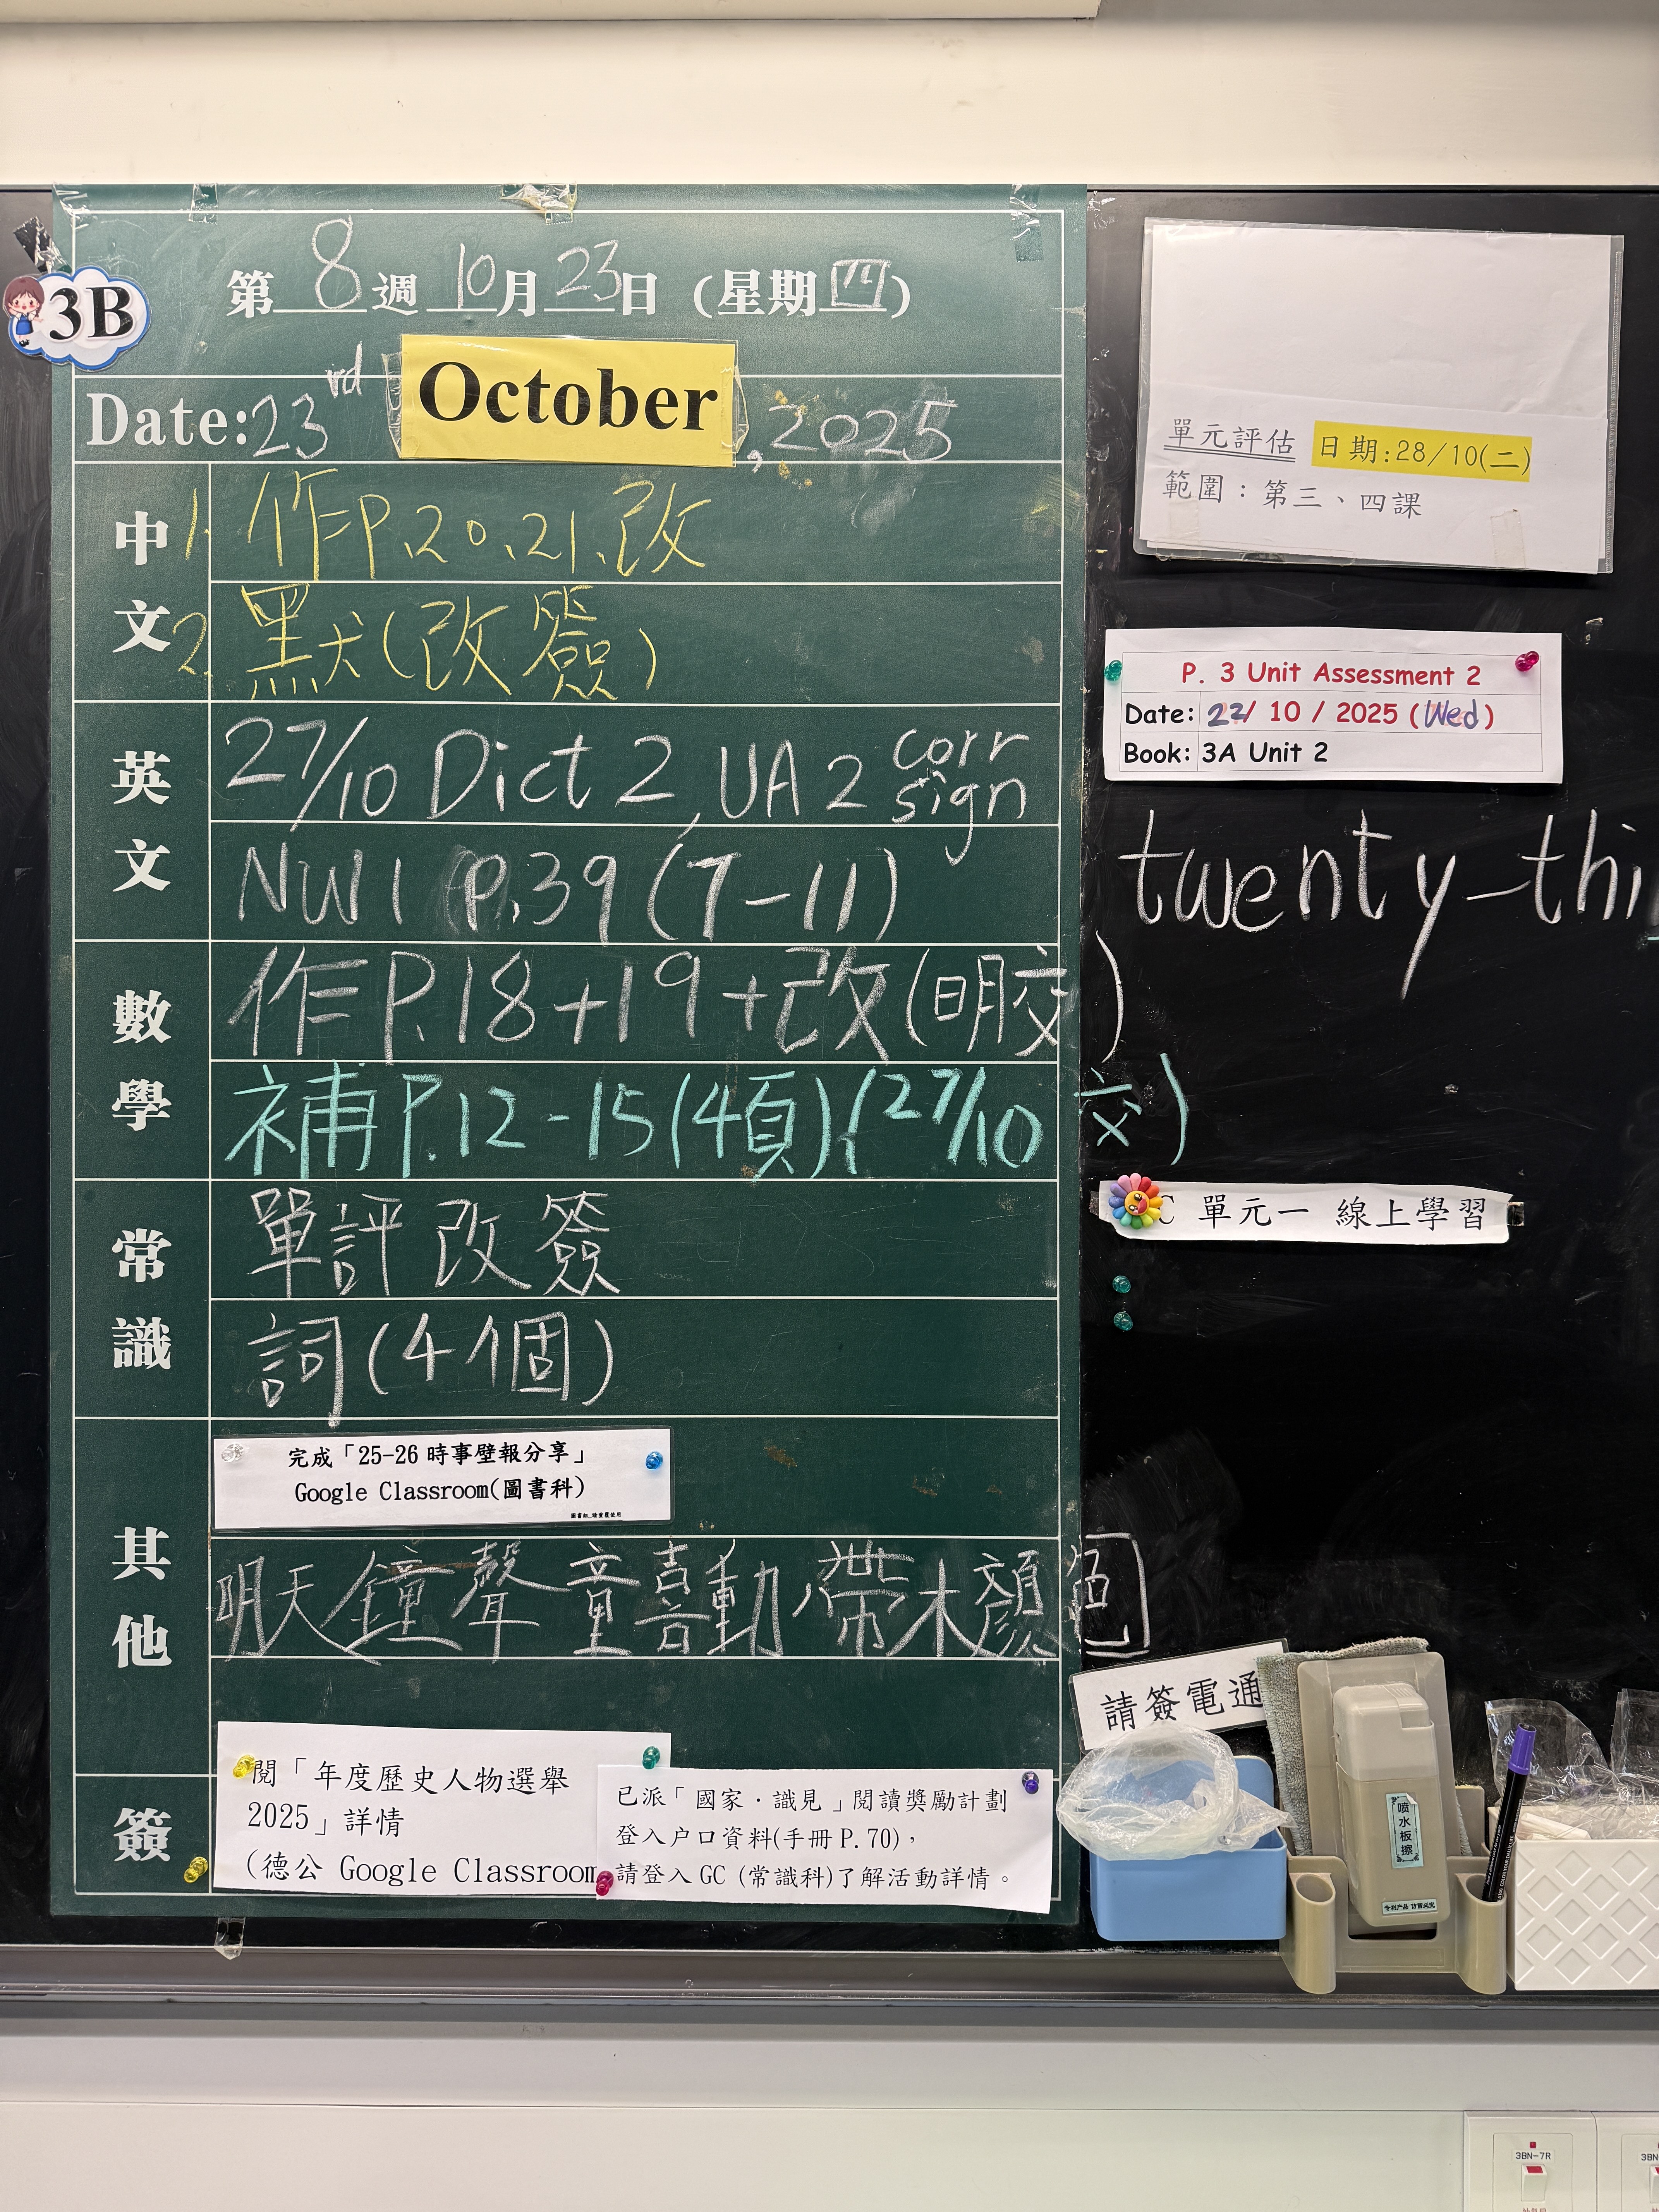 第8週10月23日(星期四)
3B
Date:23rd October,2025
中文
1. 作P.20.21.改
2. 默(改簽)
英文
27/10 Dict 2, UA 2 corr sign
NW1 P.39 (7-11)
數學
作P.18+19+改(明交)
補P.12-15(4頁)(27/10交)
常識
單評改簽
詞(4個)
其他
完成「25-26 時事壁報分享」
Google Classroom(圖書科)
圖書組_請重覆使用
明天鐘聲童喜動,帶木顏色
簽
閱「年度歷史人物選舉
2025」詳情
(德公 Google Classroom
已派「國家·識見」閱讀獎勵計劃
登入户口資料(手冊 P.70),
請登入 GC (常識科)了解活動詳情。
單元評估 日期:28/10(二)
範圍:第三、四課
P. 3 Unit Assessment 2
Date: 22/ 10 / 2025 (Wed)
Book: 3A Unit 2
twenty-thi
C 單元一 線上學習
請簽電通
喷水板擦
专利产品 仿冒必究
3BN-7R
3BN